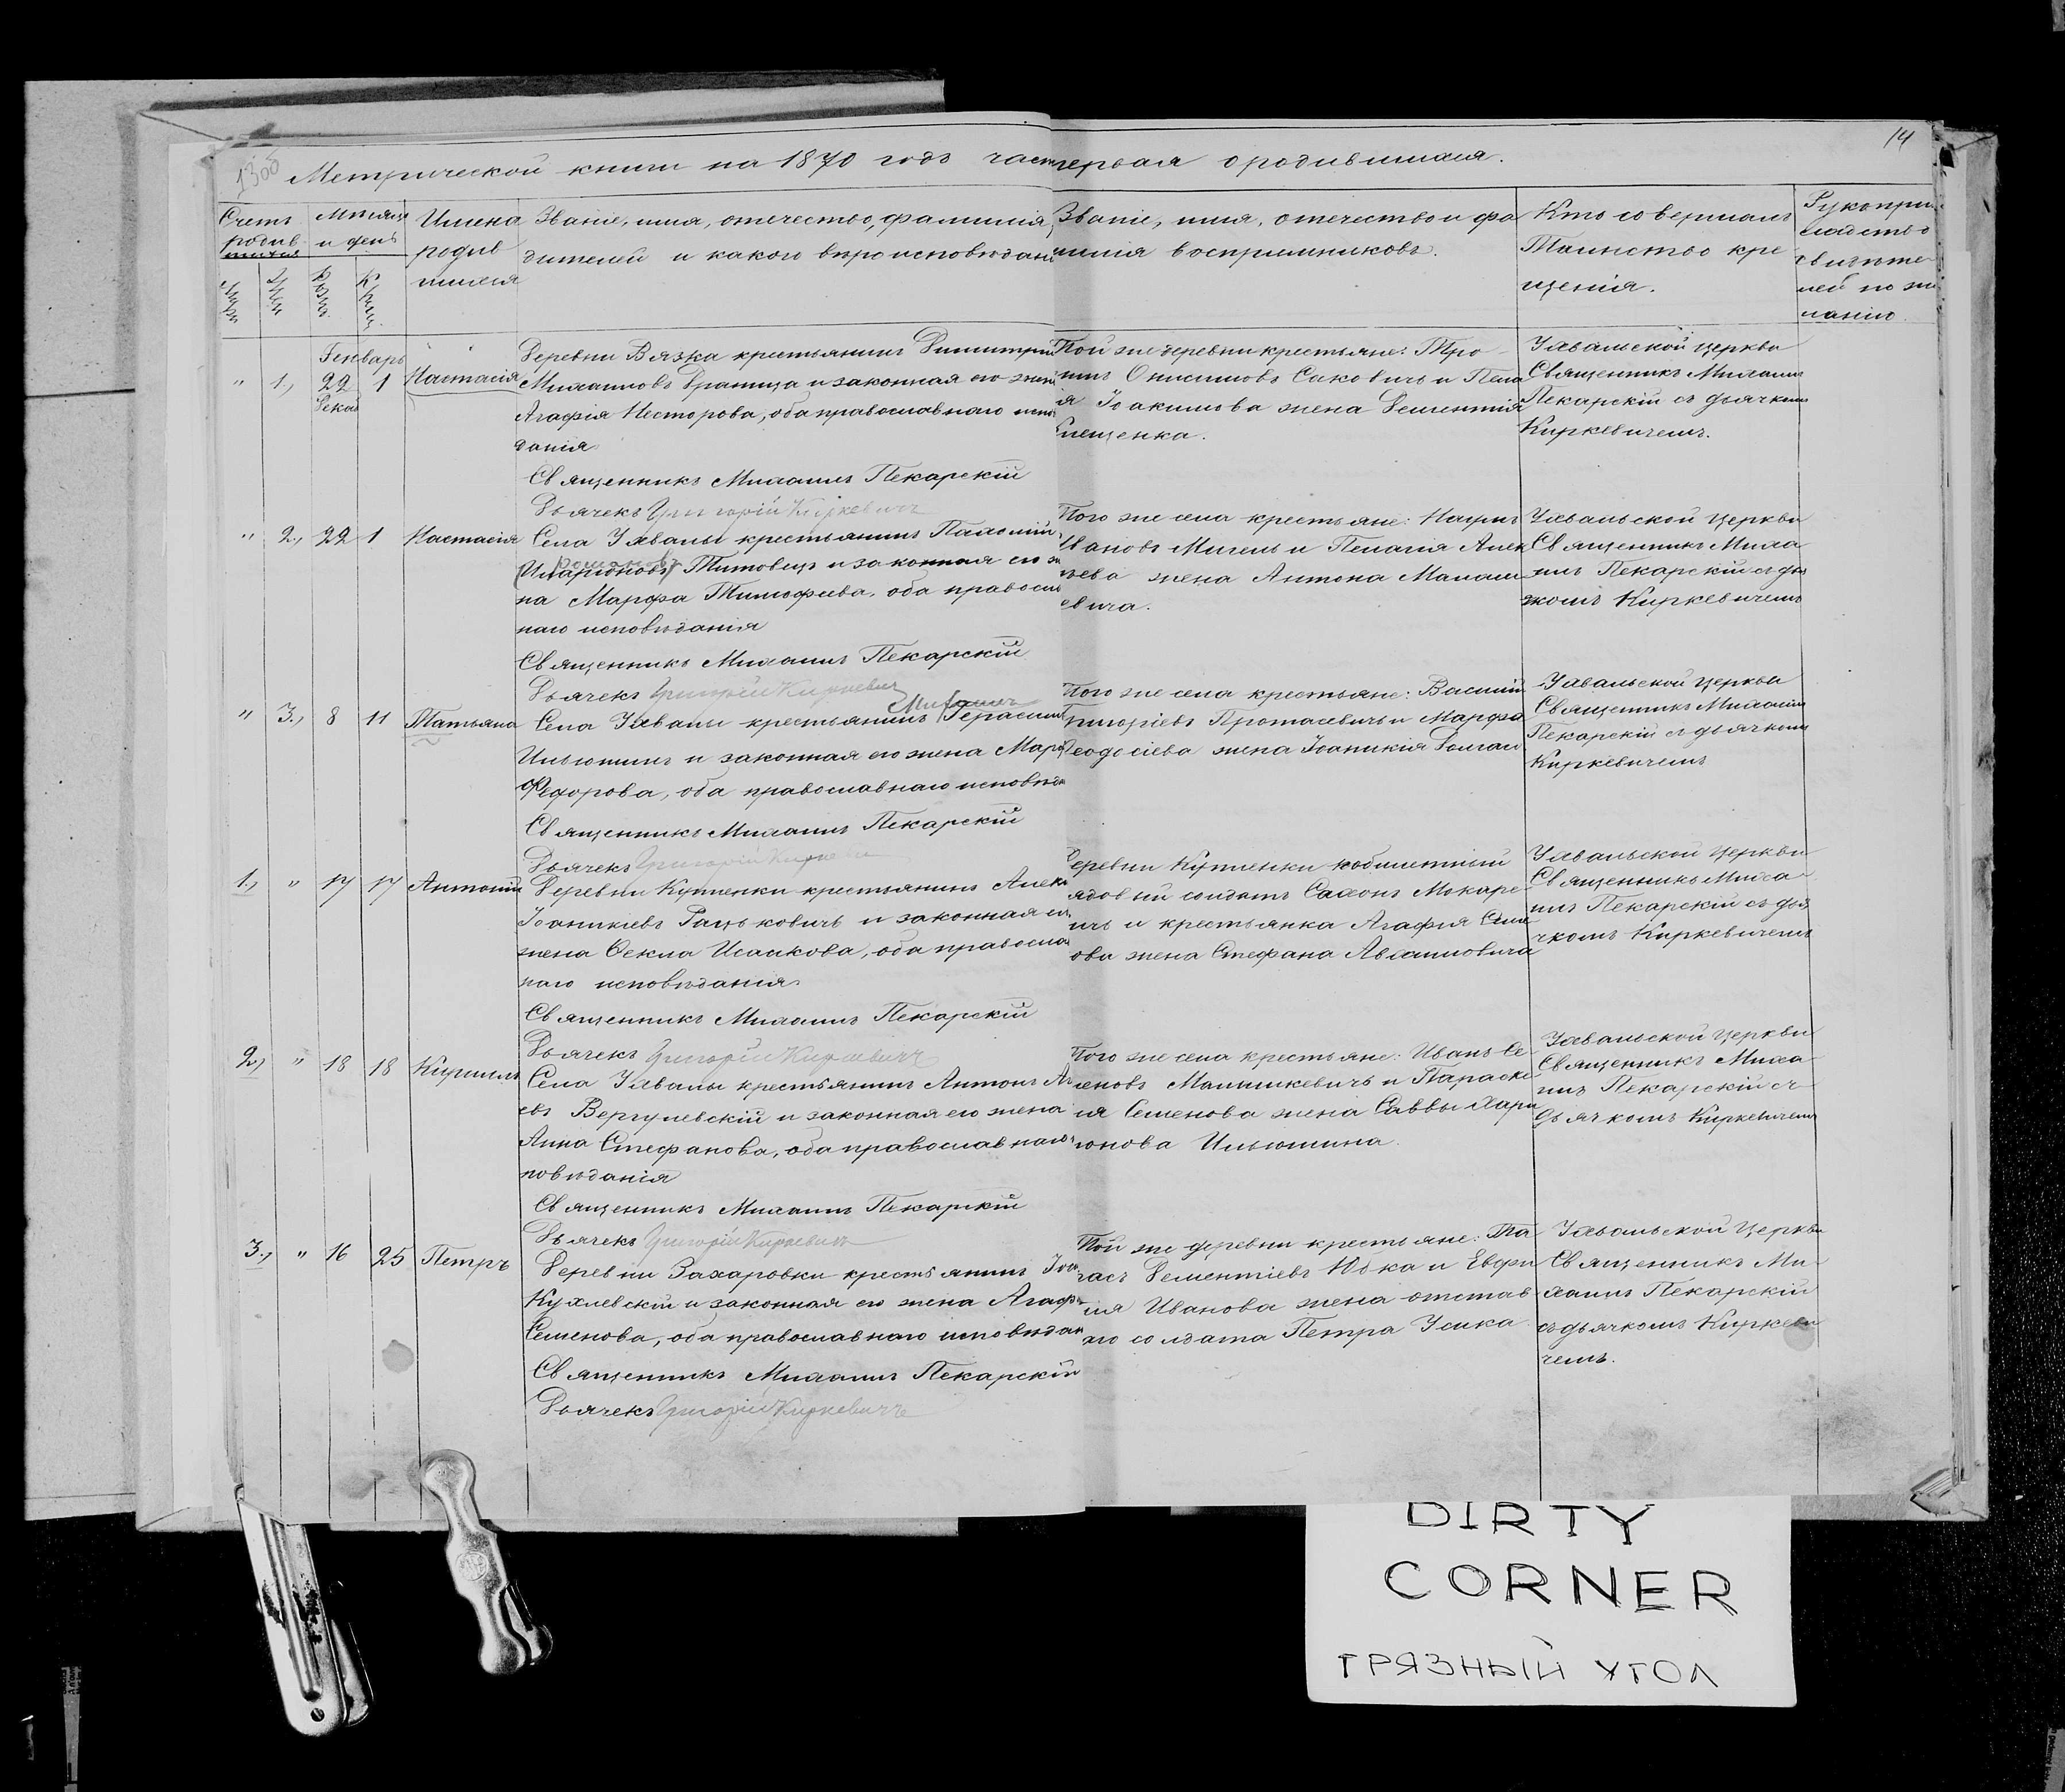 14
1300
Метрической книги на 1870 годъ часть первая о родившихся.
Счетъ родив шихся
Мѣсяцъ и день
Имена родив шихся
Званіе, имя, отечество, фамилія
дителей и какого вѣроисповѣдані
Званіе, имя, отечество и фа
милія воспріемниковъ.
Кто совершалъ
Таинство кре
щенія.
Рукопри
кладство
свидѣте
лей по же
ланію
Генварь
" 1., 22 1 Настасія
Декаб
Деревни Вязка крестьянинъ Димитрій
Михаиловъ Драница и законная его жена
Агафія Несторова, оба православнаго испо
данія
Священникъ Михаилъ Пекарскій
Дьячекъ Григорій Киркевичъ
Той же деревни крестьяне: Тро
имъ Онисимовъ Саковичъ и Пела
я Іоакимова жена Дементія
Клещенка.
Ухвальской церкви
Священникъ Михаилъ
Пекарскій съ дьячкомъ
Киркевичемъ.
" 2., 22 1 Настасія
Села Ухвалы крестьянинъ Палемій
Романовъ
(Иларіоновъ) Титовецъ и законная его же
на Марфа Тимофеева, оба правосла
наго исповѣданія
Священникъ Михаилъ Пекарскій
Дьячекъ Григорій Киркевичъ
Того же села крестьяне: Наумъ
Ивановъ Мигель и Пелагія Алек
ѣева жена Антона Малаш
евича.
Ухвальской церкви
Священникъ Миха
илъ Пекарскій съ дья
чкомъ Киркевичемъ
" 3., 8 11 Татьяна
Михаилъ
Села Ухвалы крестьянинъ Герасимъ
Ильюшинъ и законная его жена Марѳ
Федорова, оба православнаго исповѣда
Священникъ Михаилъ Пекарскій
Дьячекъ Григорій Киркевичъ
Того же села крестьяне: Василій
Григоріевъ Протасевичъ и Марфа
Ѳеодосіева жена Іоаникія Долгал
Ухвальской церкви
Священникъ Михаилъ
Пекарскій съ дьячкомъ
Киркевичемъ
1., " 17 17 Антоній
Деревни Купленки крестьянинъ Алек
Іоаникіевъ Рацьковичъ и законная его
жена Ѳекла Исаакова, оба правосла
наго исповѣданія
Священникъ Михаилъ Пекарскій
Дьячекъ Григорій Киркевичъ
Деревни Купленки
ядовый солдатъ Сахонъ Мокаре
ичъ и крестьянка Агафія Семе
ова жена Стефана Авхимовича
Ухвальской церкви
Священникъ Миха
илъ Пекарскій съ дья
чкомъ Киркевичемъ
2., " 18 18 Кириллъ
Села Ухвалы крестьянинъ Антонъ Ан
евъ Вергулевскій и законная его жена
Анна Стефанова, оба православнаго
повѣданія
Священникъ Михаилъ Пекарскій
Дьячекъ Григорій Киркевичъ
Того же села крестьяне: Иванъ Се
меновъ Малашкевичъ и Параске
ія Семенова жена Саввы Хари
тонова Ильюшина.
Ухвальской церкви
Священникъ Миха
илъ Пекарскій съ
дьячкомъ Киркевичемъ
3., " 16 25 Петръ
Деревни Захаровки крестьянинъ Іоа
Кухлевскій и законная его жена Агаф
Семенова, оба православнаго исповѣдан
Священникъ Михаилъ Пекарскій
Дьячекъ Григорій Киркевичъ
Той же деревни крестьяне: Та
расъ Дементіевъ Юдка и Евфи
ія Иванова жена отстав
аго солдата Петра Усика
Ухвальской церкви
Священникъ Ми
хаилъ Пекарскій
съ дьячкомъ Киркеви
чемъ.
DIRTY
CORNER
ГРЯЗНЫЙ УГОЛ